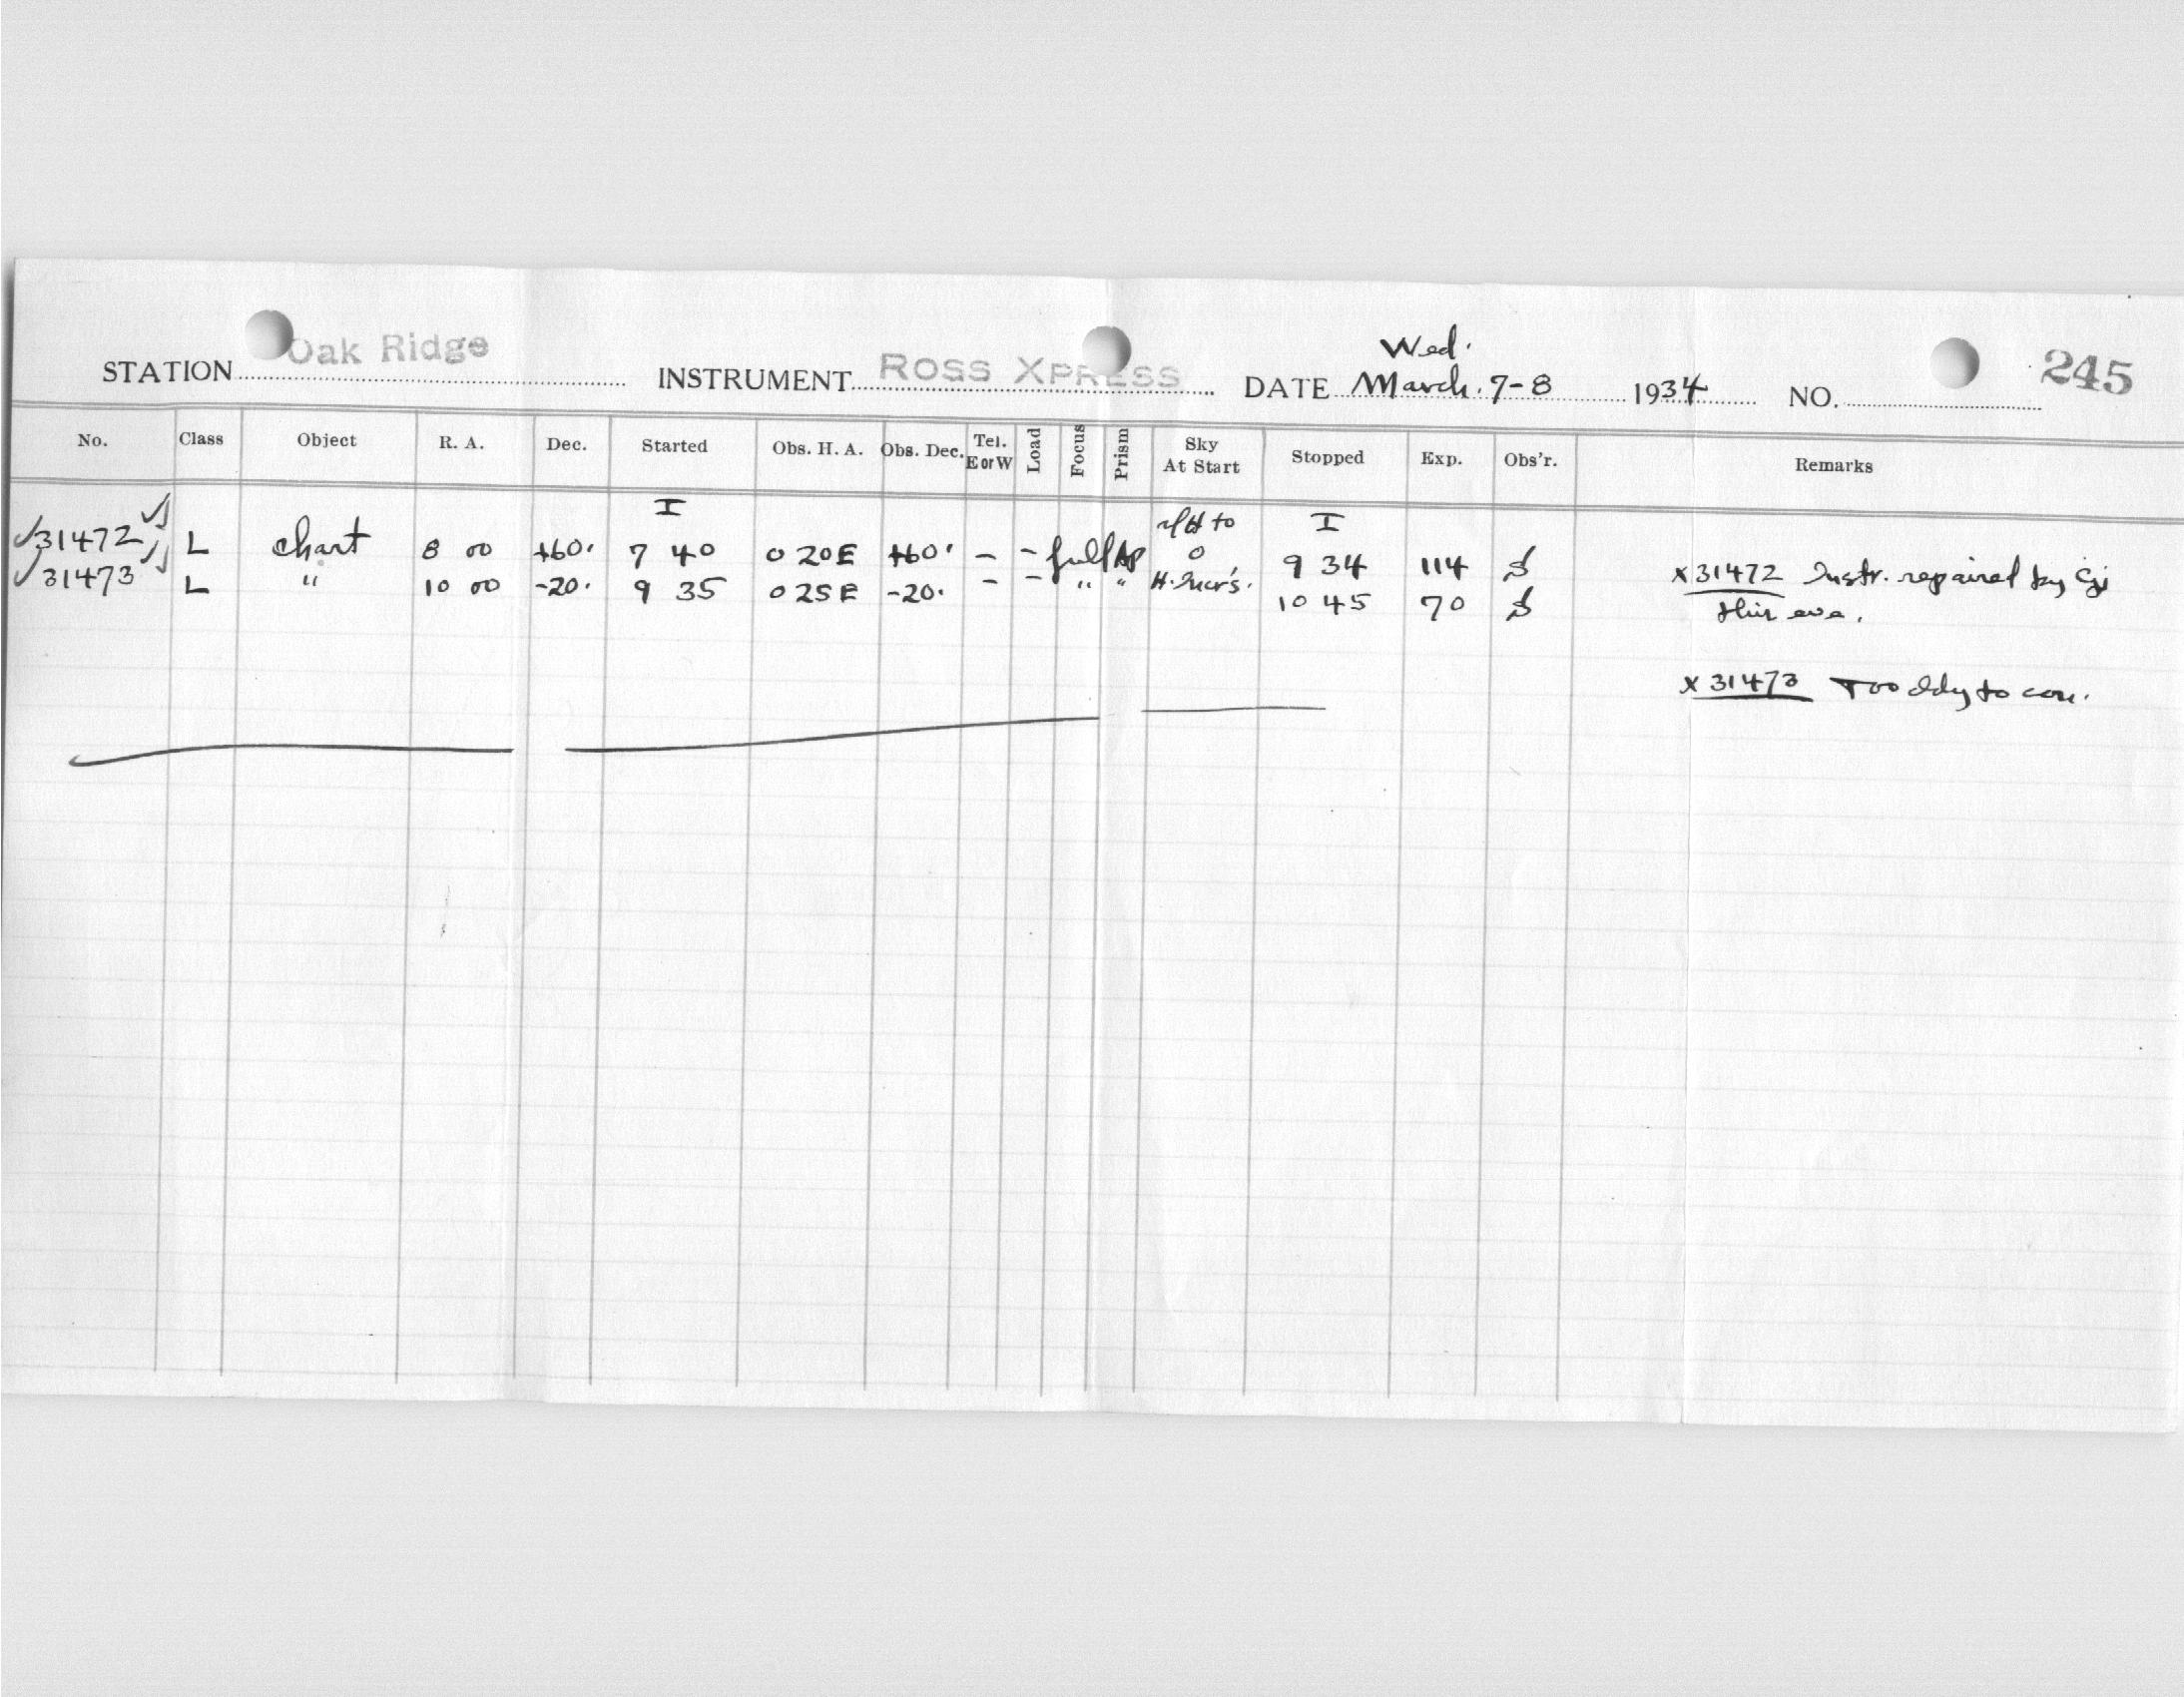 Wed.
STATION Oak Ridge INSTRUMENT ROSS XPRESS DATE March. 7-8 1934 NO. 245
No. Class Object R. A. Dec. Started Obs. H. A. Obs. Dec. Tel. E or W Load Focus Prism Sky At Start Stopped Exp. Obs'r. Remarks
I I
31472 L Chart 8 00 +60. 7 40 0 20E +60. - - full Ap H to 0 9 34 114 S
31473 L " 10 00 -20. 9 35 0 25E -20. - - " " H. 10 45 70 S
x31472 Instr. repaired by
this eve.
x31473 Too cldy to con.